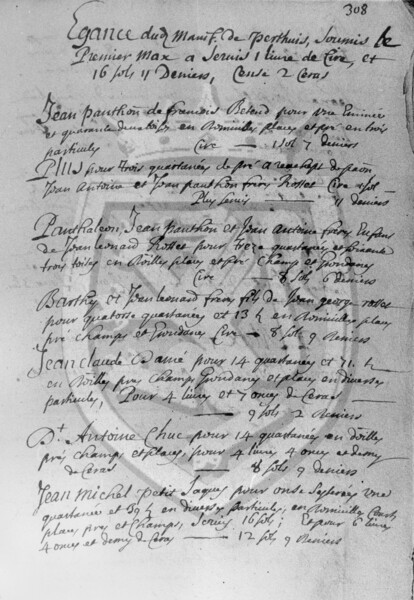 308
Egance dud Manif. de Perthuis, Soumis le
Premier Max a Servis 1 livre de Cire, et
16 sols 11 Deniers, Cense 2 Ceras
Jean panthon de francois Betend pour Une Eminée
et quarante deux toises en Domicilles places et pré en trois
particules Cire — 1 sol 7 deniers
Plus pour trois quartanées de pré a
Jean Antoine et Jean panthon freres Rosset Cire
Plus Servis — 11 deniers
Panthaleon, Jean panthon et Jean Antoine freres Enfans
de Jean Leonard Rosset pour treze quartanées et
trois toises en places et pré Champ et
Cire — 8 sols 6 Deniers
Barthy et Jean Leonard freres fils de Jean george rosset
pour quatorse quartanées et 13 t en Domicilles places
pré champs et Cire — 8 sols 9 Deniers
Jean Claude Damé pour 14 quartanées et 71. t
en prés Champs et places en diverses
particules, Pour 4 livres et 7 onces de Ceras
— 9 sols 2 Deniers
Dt. Antoine Chuc pour 14 quartanées en
prés champs et places, pour 4 livres 4 onces et demy
de Ceras — 8 sols 9 deniers
Jean michel petit Jaques pour onse Seyterées Une
quartanée et 39 t en diverses particules, en Domicilles Courts
places prés et Champs, Servis 16 sols; Et pour 6 livres
4 onces et demy de Ceras — 12 sols 9 Deniers